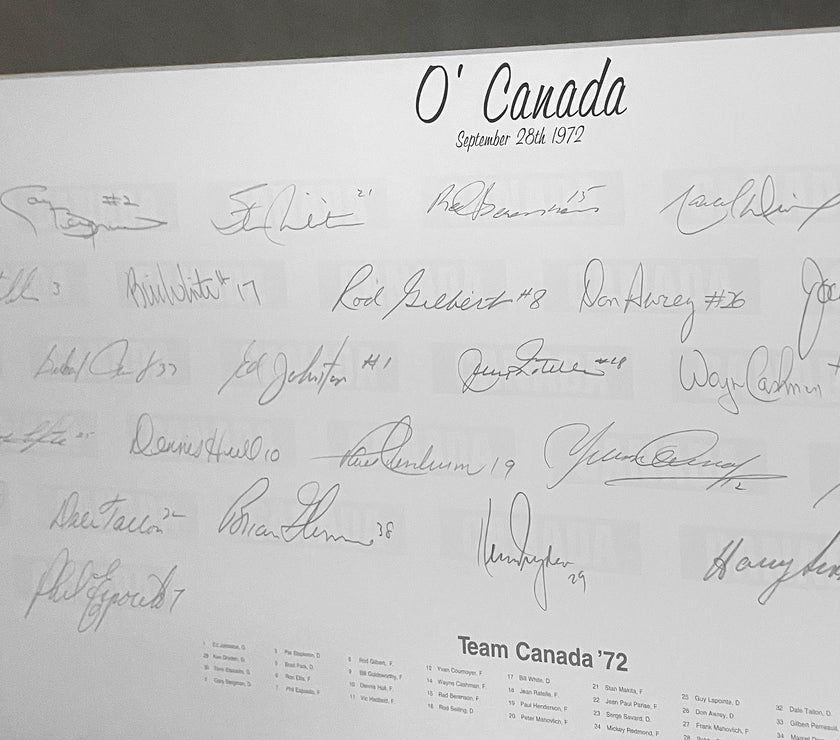 O' Canada
September 28th 1972
Gary Bergman #2
Stan Mikita 21
Red Berenson 15
3
Bill White 17
Rod Gilbert #8
Don Awrey #26
Ed Johnston #1
Jean Ratelle #18
Wayne Cashman
Dennis Hull 10
Paul Henderson 19
Yvan Cournoyer 12
Dale Tallon 32
Brian Glennie 38
Ken Dryden 29
Harry Sin
Phil Esposito 7
Team Canada '72
1 Ed Johnston, G.
29 Ken Dryden, G.
35 Tony Esposito, G.
2 Gary Bergman, D.
3 Pat Stapleton, D
5 Brad Park, D.
6 Ron Ellis, F.
7 Phil Esposito, F.
8 Rod Gilbert, F.
9 Bill Goldsworthy, F.
10 Dennis Hull, F.
11 Vic Hadfield, F.
12 Yvan Cournoyer, F
14 Wayne Cashman, F.
15 Red Berenson, F.
16 Rod Seiling, D.
17 Bill White, D
18 Jean Ratelle, F.
19 Paul Henderson, F.
20 Peter Mahovlich, F.
21 Stan Mikita, F
22 Jean Paul Parise, F.
23 Serge Savard, D.
24 Mickey Redmond, F.
25 Guy Lapointe, D
26 Don Awrey, D
27 Frank Mahovlich, F
28
32 Dale Tallon, D.
33 Gilbert Perreault
34 Marcel